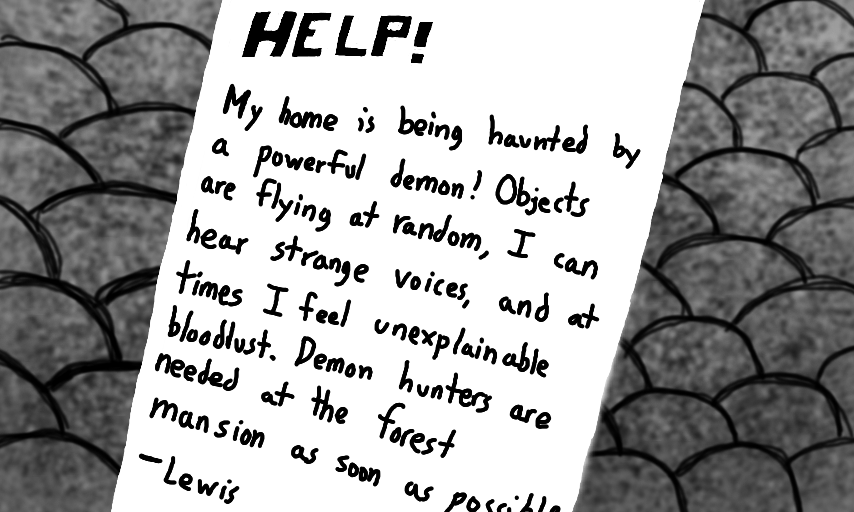 HELP!
My home is being haunted by
a powerful demon! Objects
are flying at random, I can
hear strange voices, and at
times I feel unexplainable
bloodlust. Demon hunters are
needed at the forest
mansion as soon as possible
-Lewis